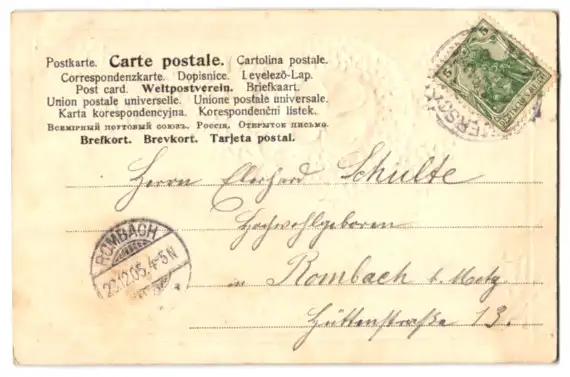 Postkarte. Carte postale. Cartolina postale.
Correspondenzkarte. Dopisnice. Levelező-Lap.
Post card. Weltpostverein. Briefkaart.
Union postale universelle. Unione postale universale.
Karta korespondencyjna. Korespondenční lístek.
Всемірный почтовый союзъ. Россія. Открытое письмо.
Brefkort. Brevkort. Tarjeta postal.
5 5
Herrn Eberhard Schulte
Hochwohlgeboren
in Rombach b. Metz
Hüttenstraße 13.
ROMBACH
23.12.05. 4-5 N